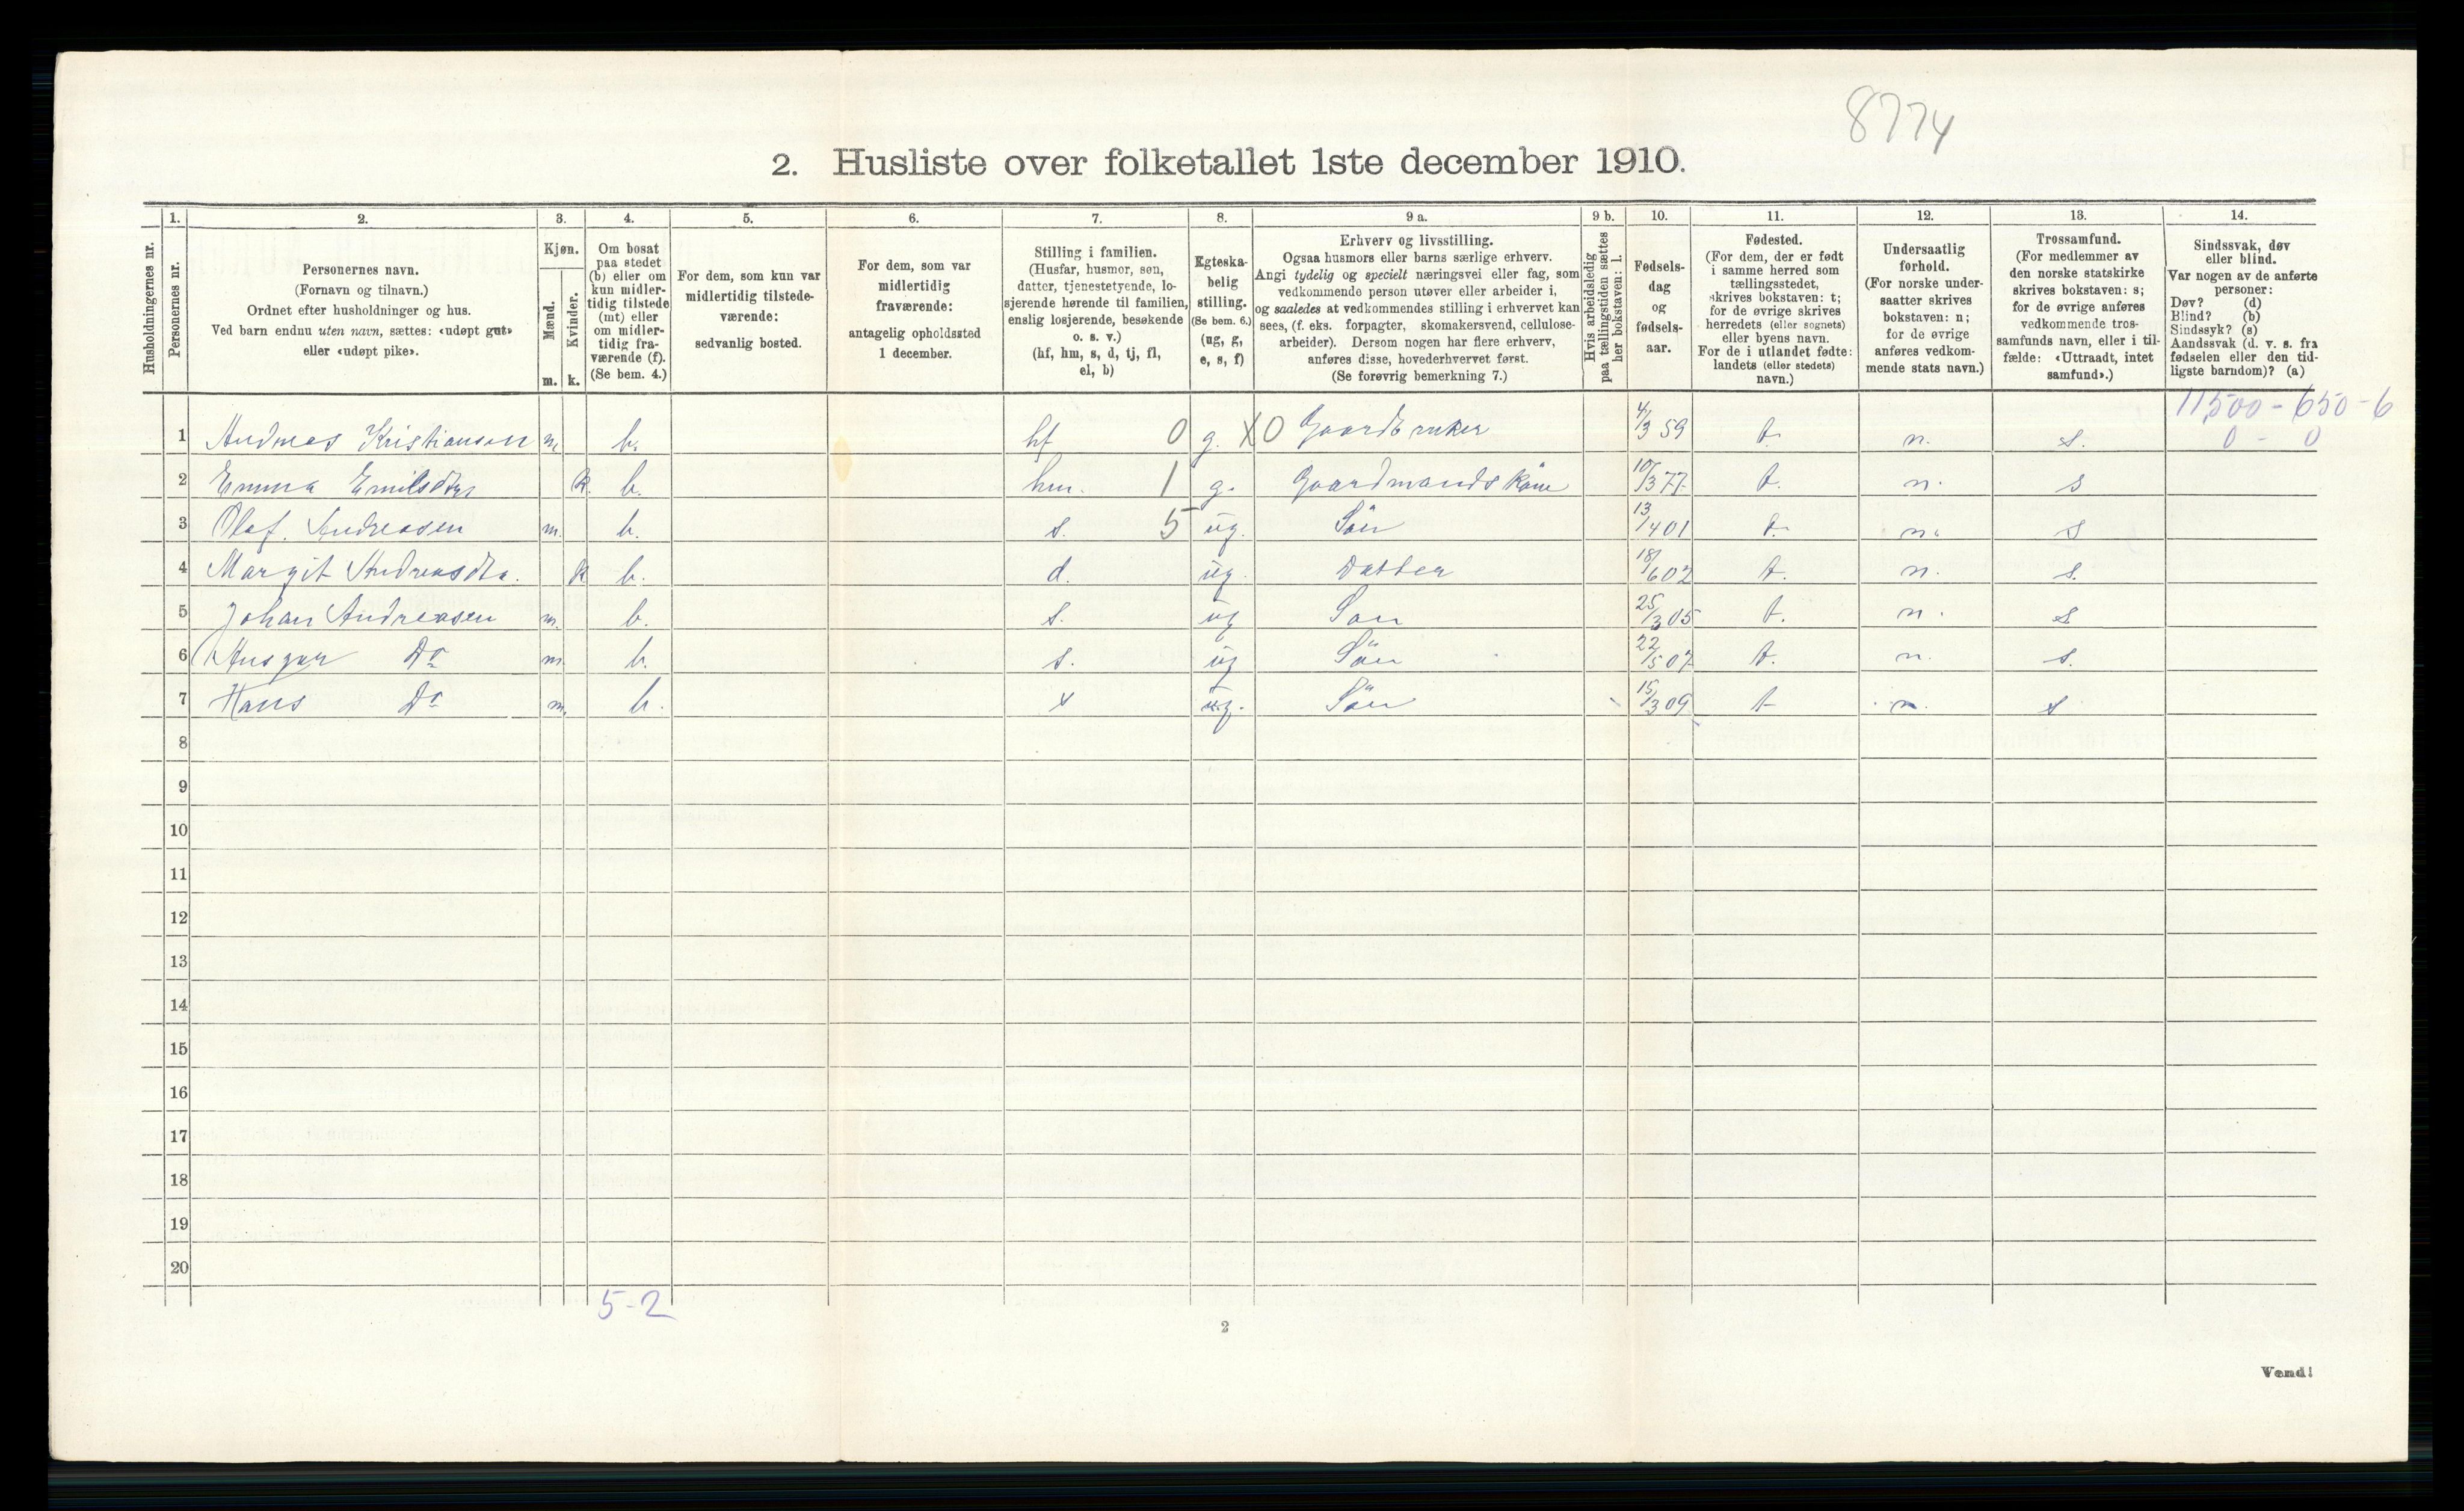 8774
2. Husliste over folketallet 1ste december 1910.
Husholdningernes nr.
1.
Personernes nr.
2.
Personernes navn.
(Fornavn og tilnavn.)
Ordnet efter husholdninger og hus.
Ved barn endnu uten navn, sættes: «udøpt gut»
eller «udøpt pike».
3.
Kjøn.
Mænd.
Kvinder.
m.
k.
4.
Om bosat
paa stedet
(b) eller om
kun midler-
tidig tilstede
(mt) eller
om midler-
tidig fra-
værende (f).
(Se bem. 4.)
5.
For dem, som kun var
midlertidig tilstede-
værende:
sedvanlig bosted.
6.
For dem, som var
midlertidig
fraværende:
antagelig opholdssted
1 december.
7.
Stilling i familien.
(Husfar, husmor, søn,
datter, tjenestetyende, lo-
sjerende hørende til familien,
enslig losjerende, besøkende
o. s. v.)
(hf, hm, s, d, tj, fl,
el, b)
8.
Egteska-
belig
stilling.
(Se bem. 6.)
(ug, g,
e, s, f)
9 a.
Erhverv og livsstilling.
Ogsaa husmors eller barns særlige erhverv.
Angi tydelig og specielt næringsvei eller fag, som
vedkommende person utøver eller arbeider i,
og saaledes at vedkommendes stilling i erhvervet kan
sees, (f. eks. forpagter, skomakersvend, cellulose-
arbeider). Dersom nogen har flere erhverv,
anføres disse, hovederhvervet først.
(Se forøvrig bemerkning 7.)
9 b.
Hvis arbeidsledig
paa tællingstiden sættes
her bokstaven: l.
10.
Fødsels-
dag
og
fødsels-
aar.
11.
Fødested.
(For dem, der er født
i samme herred som
tællingsstedet,
skrives bokstaven: t;
for de øvrige skrives
herredets (eller sognets)
eller byens navn.
For de i utlandet fødte:
landets (eller stedets)
navn.)
12.
Undersaatlig
forhold.
(For norske under-
saatter skrives
bokstaven: n;
for de øvrige
anføres vedkom-
mende stats navn.)
13.
Trossamfund.
(For medlemmer av
den norske statskirke
skrives bokstaven: s;
for de øvrige anføres
vedkommende tros-
samfunds navn, eller i til-
fælde: «Uttraadt, intet
samfund».)
14.
Sindssvak, døv
eller blind.
Var nogen av de anførte
personer:
Døv? (d)
Blind? (b)
Sindssyk? (s)
Aandssvak (d. v. s. fra
fødselen eller den tid-
ligste barndom)? (a)
11,500 - 650 - 6
1 Andreas Kristiansen m. b. hf 0 g. X0 Gaardbruker 4/3 59 t. n. s. 0 - 0
2 Emma Emilsdtr k. b. hm. 1 g. Gaardmandskone 10/3 77 t. n. s
3 Olaf. Andreasen m. b. s. 5 ug. Sön 13/4 01 t. n. s
4 Margit Andreasdtr. k b. d. ug. Datter 18/6 02 t. n. s.
5 Johan Andreasen m. b. s. ug Son 25/3 05 t. n. s
6 Ansgar Do m. b. s. ug Sön 22/5 07 t. n. s.
7 Hans Do m. b. s ug. Sön 15/3 09 t n. s
8
9
10
11
12
13
14
15
16
17
18
19
20
5-2
2
Vend!